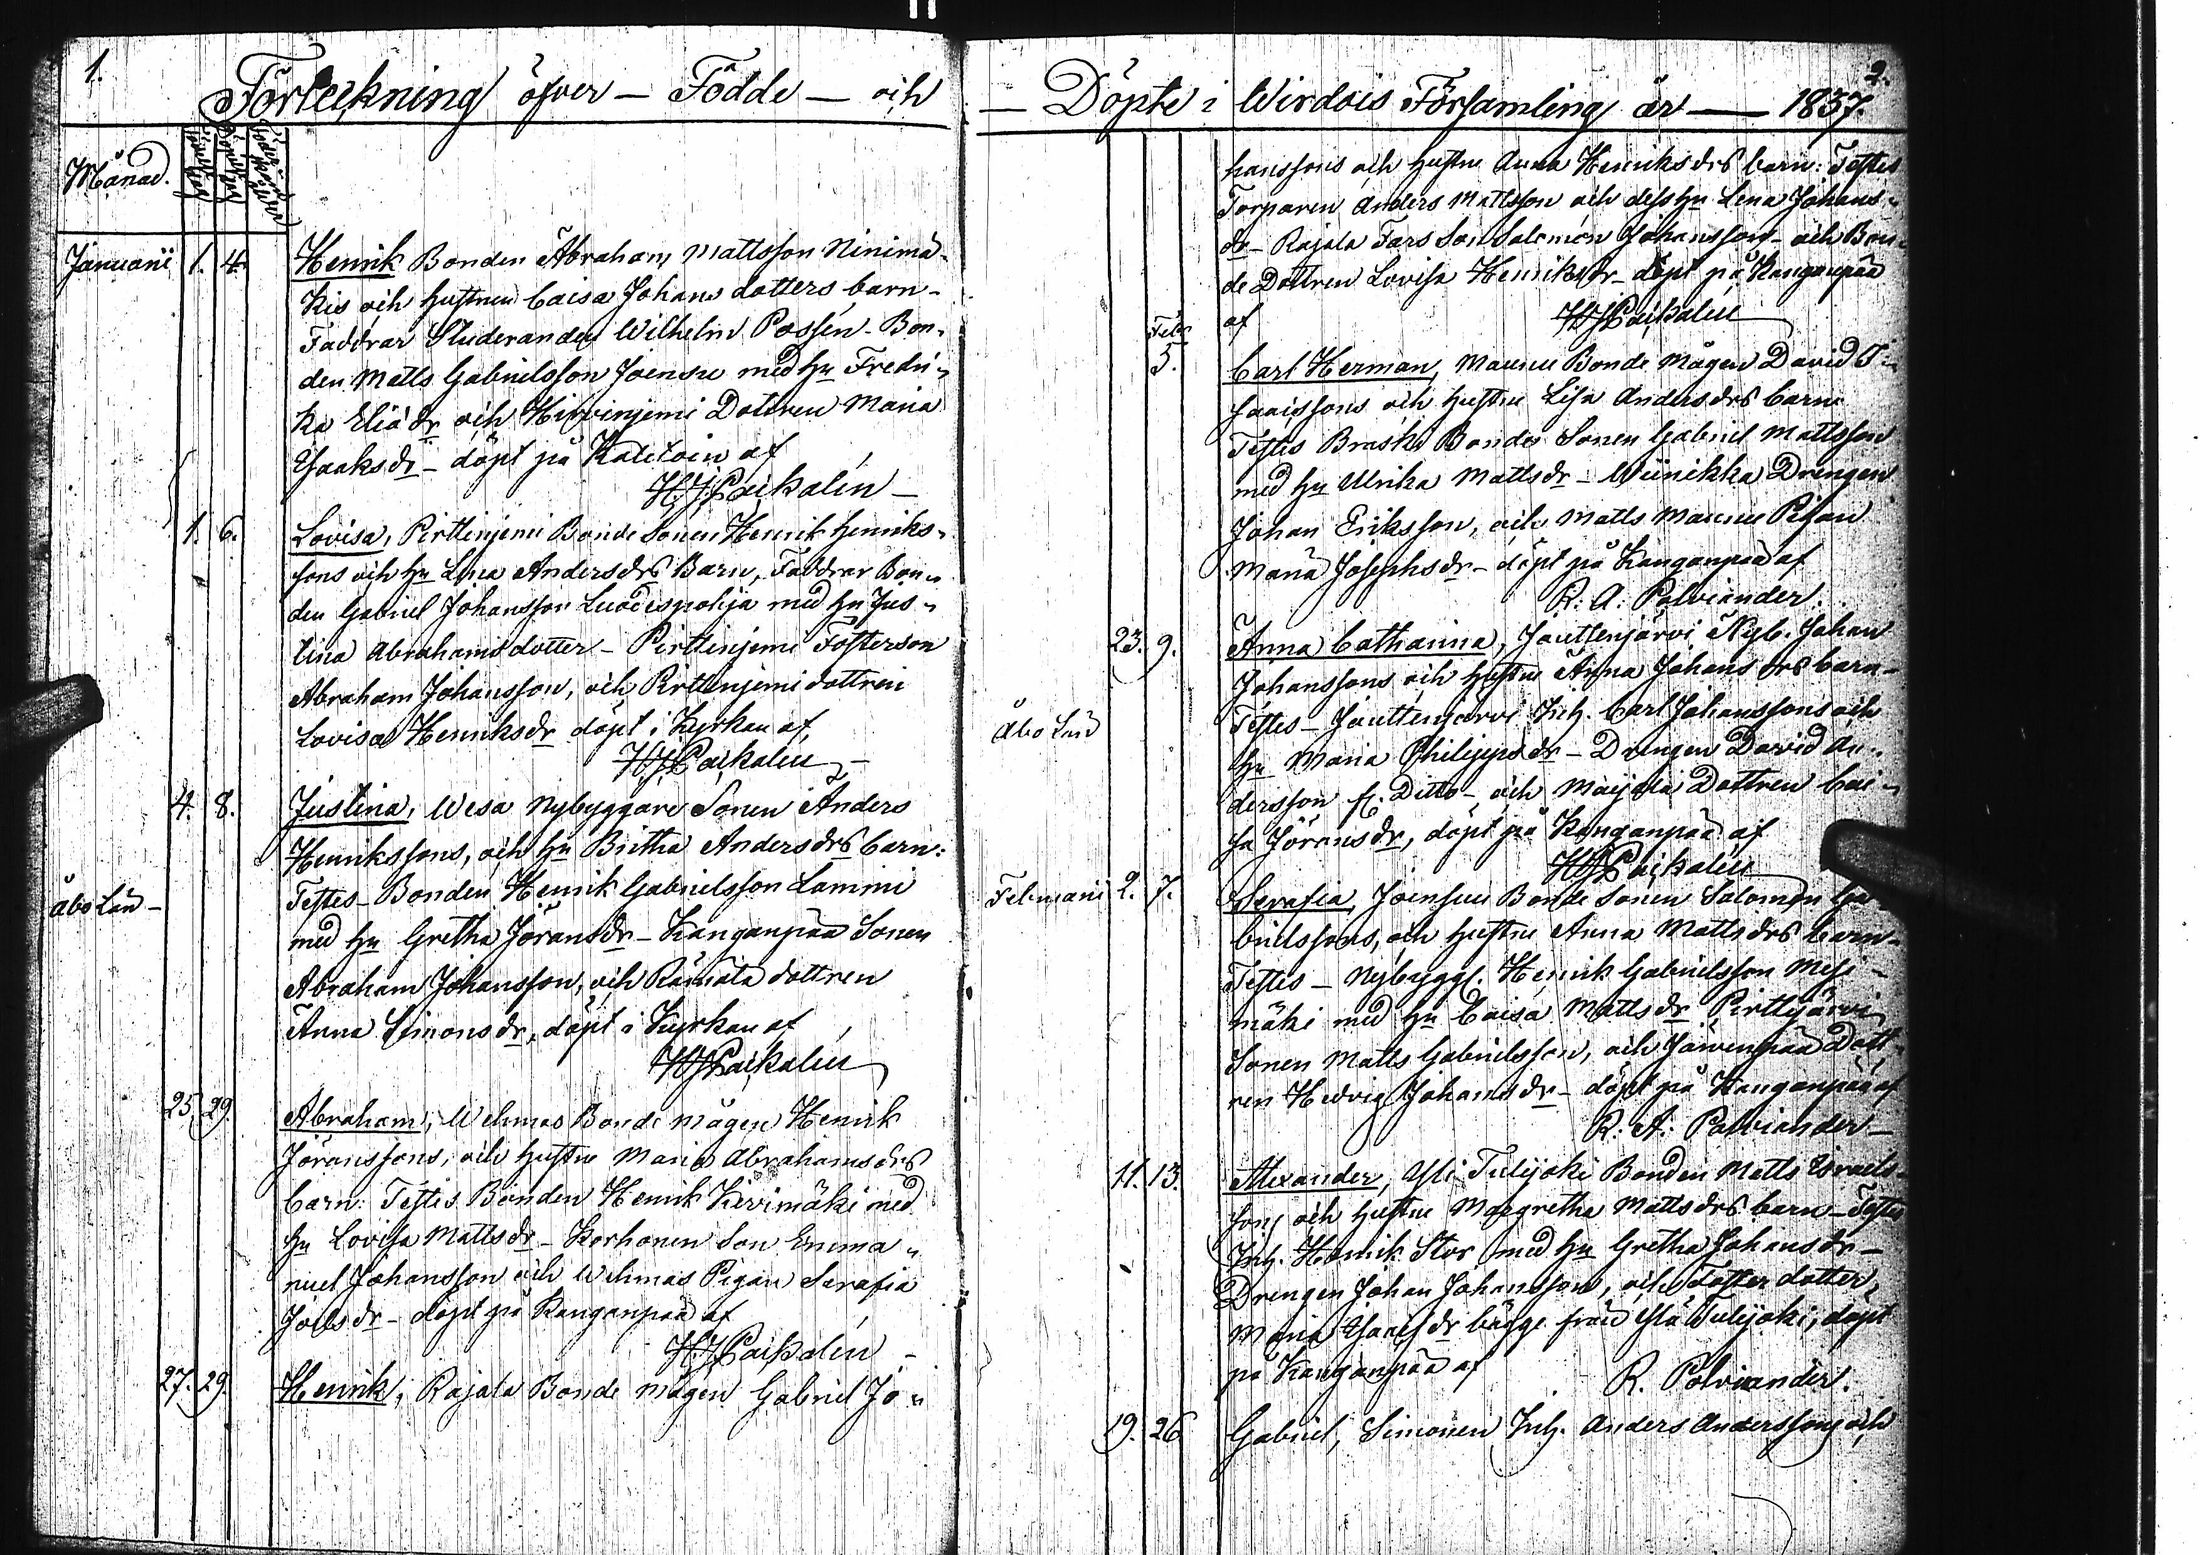 1.
Förteckning öfver – Födde – och
Månad.
Januarii 1. 4. Henrik Bonden Abraham Mattsson Ninimä-
kis och hustrun Caisa Johans dotters barn –
Faddrar Studeranden Wilhelm Possén – Bon-
den Matts Gabrielsson Joensu med hu Fredri-
ka Eliædr och Hirvinjemi Dottren Maria
Isaksdr – döpt på Kaletoin af
H.J. Paikalén –
1. 6. Lovisa, Pirttinjemi Bonde Sonen Henrik Henriks-
sons och hu Lena Andersdrs Barn, Faddrar Bon-
den Gabriel Johansson Luodespohja med hu Jus-
tina Abrahams dotter – Pirttinjemi Fosterson
Abraham Johansson, och Pirttinjemi dottren
Lovisa Henriksdr döpt i Kyrkan af
H.J. Paikalén –
4. 8. Justina, Wesa Nybyggare Sonen Anders
Henrikssons, och hu Britha Andersdrs barn:
Åbo Län – Testes – Bonden Henrik Gabrielsson Lammi
med hu Gretha Jöransdr – Kanganpää Sonen
Abraham Johansson, och dottren
Anna Simonsdr, döpt i Kyrkan af
H.J. Paikalén
25. 29. Abraham, Wehmas Bonde mågen Henrik
Jöranssons, och hustru Maria Abrahamsdrs
barn: Testes Bonden Henrik Kivimäki med
hu Lovisa Mattsdr – Korhonen Son Emma-
nuel Johansson och Wehmas Pigan Serafia
Joelsdr – döpt på Kanganpää af
H.J. Paikalén –
27. 29. Henrik, Rajala Bonde mågen Gabriel Jo-
2.
– Döpte i Wirdois Församling år — 1837.
hanssons och hustru Anna Henriksdrs barn: Testes
Torparen Anders Mattsson och dess hu Lena Johans-
dr – Rajala Fars Son Salomon Johansson – och Bon-
de Dottren Lovisa Henriksdr – döpt på Kanganpää
af H.J. Paikalén
Febr
5. Carl Herman, Maunu Bonde Mågen David
Isaacssons och hustru Lisa Andersdrs barn
Testes Braski Bonde Sonen Gabriel Mattsson
med hu Ulrika Mattsdr – Wiinikka Drengen
Johan Eriksson, och Matts Maunu Pigan
Maria Josephsdr – döpt på Kanganpää af
R: A: Polviander.
23. 9. Anna Catharina, Jauttenjärvi Nyb. Johan
Johanssons och hustru Anna Johansdrs barn –
Åbo Län Testes – Jauttenjärvi Inh. Carl Johanssons och
hu Maria Philippsdr – Drengen David An-
dersson fr. Ditto – och Maijala Dottren Cai-
sa Jöransdr, döpt på Kanganpää af
H.J. Paikalén
Februarii 2. 7. Serafia, Joensuu Bonde Sonen Salomon Ga-
brielssons, och hustru Anna Mattsdrs barn –
Testes – Nybygg. Henrik Gabrielsson Mesi-
mäki med hu Caisa Mattsdr Pirttijärvi
Sonen Matts Gabrielsson, och Järvenpää Dott-
ren Hedvig Johansdr – döpt på Kanganpää af
R: A: Polviander –
11. 13. Alexander, Yli Tulijoki Bonden Matts Israels-
sons och hustru Margretha Mattsdrs barn – Testes
Inh. Henrik Stor med hu Gretha Johansdr –
Drengen Johan Johansson, och Foster dotter
Maria Isaacsdr bägge från Ylä Tulijoki, döpt
på Kanganpää af R. Polviander.
19. 26 Gabriel, Simonen Inh. Anders Anderssons och